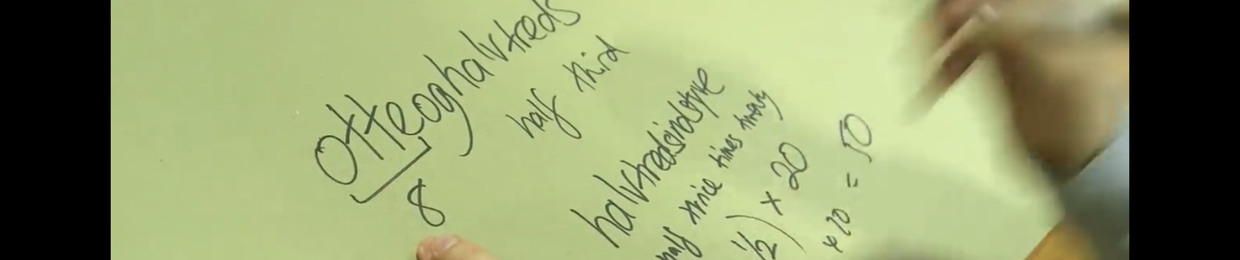 Otteoghalvtreds
8
half third
halvtredsindstyve
half thrice times twenty
½) × 20
× 20 = 50